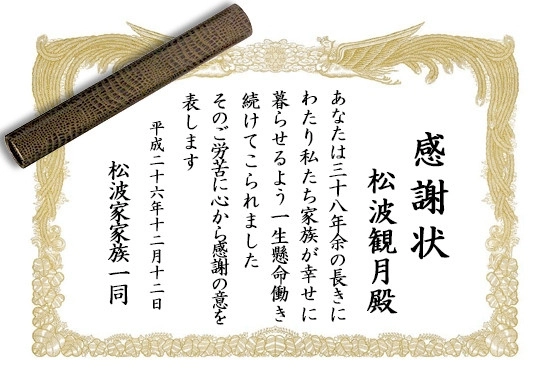 感謝状
松波観月殿
あなたは三十八年余の長きに
わたり私たち家族が幸せに
暮らせるよう一生懸命働き
続けてこられました
そのご労苦に心から感謝の意を
表します
平成二十六年十二月十二日
松波家家族一同